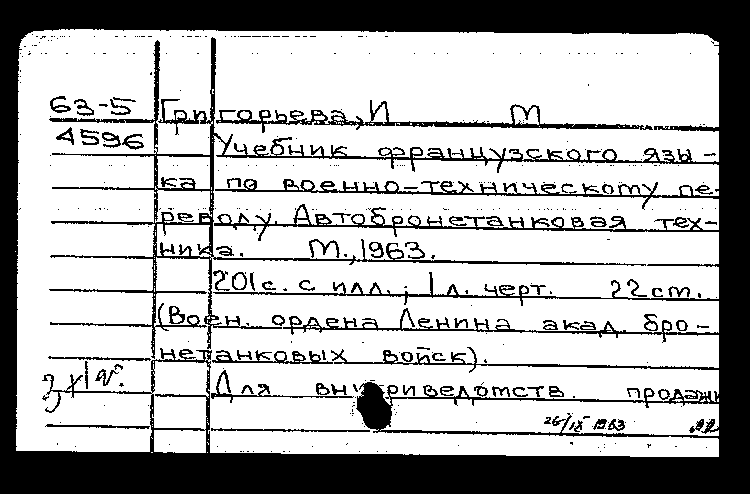 63-5 Григорьева, И М
4596 Учебник французского язы-
ка по военно-техническому пе-
реводу. Автобронетанковая тех-
ника. М., 1963.
201 с. с илл.; 1 л. черт. 22 см.
(Воен. ордена Ленина акад. бро-
нетанковых войск).
Для внутриведомств. продажи
26/IX 1963